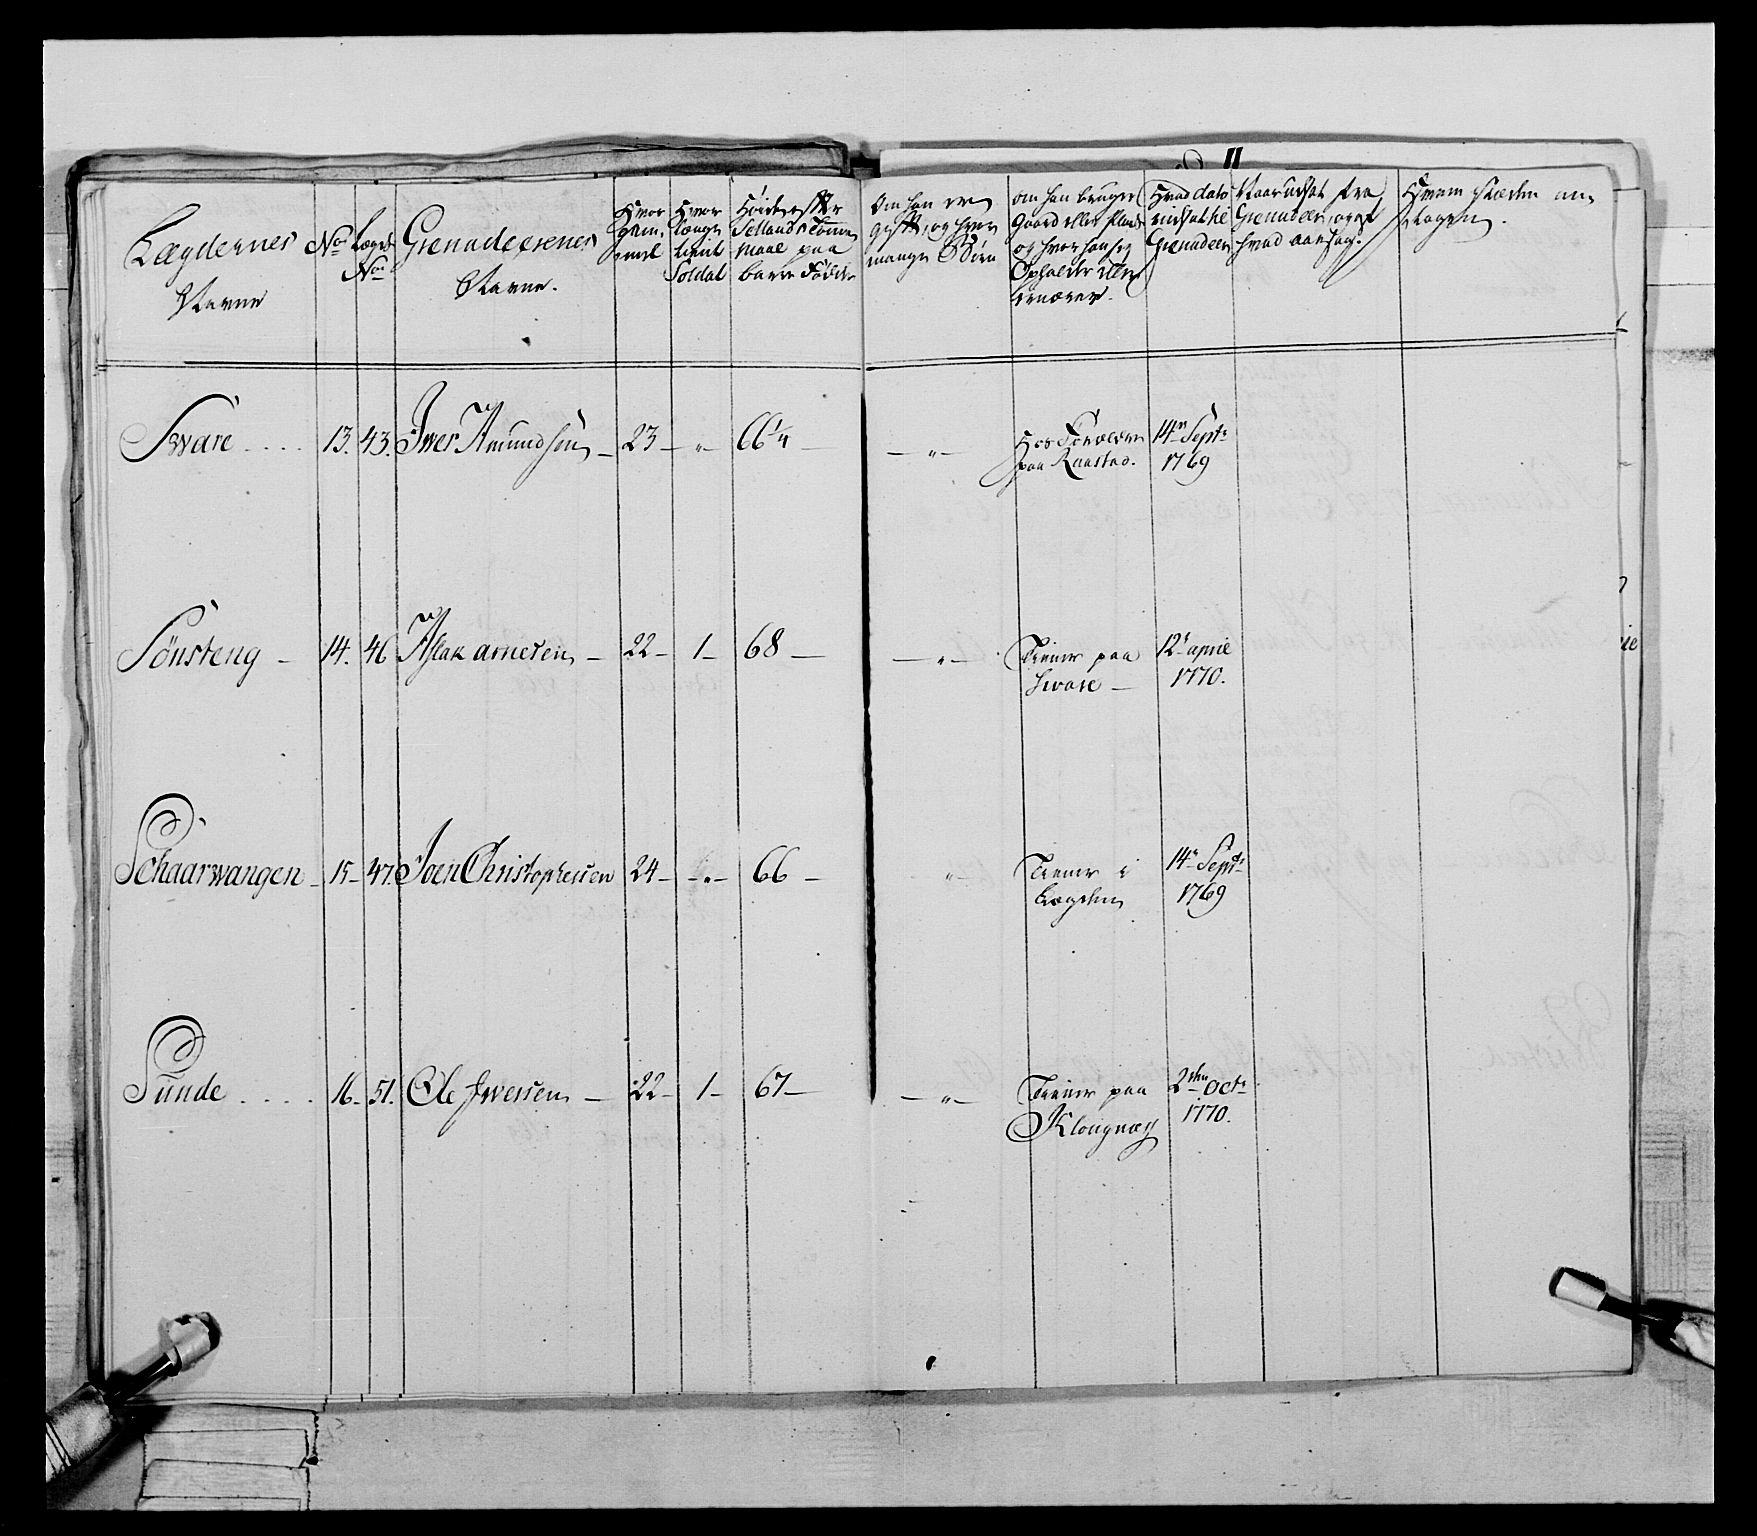 Lægdernes Navne
No
Lægds No
Grenadeerenes Navne.
Hvor gam̄el
Hvor længe tient Soldat
Høide efter Sellands Tom̄e Maal paa bare Fødder
Om han er gift, og hvor mange Børn
om han bruger Gaard eller Plads og hvor han sig Opholder eller ernærer.
Hvad dato indsat til Grenadeer
Naar udsat fra Grenadeer, og af hvad aarsag.
Hvem stæden an-tagen.
Sware .... 13. 43. Iver Amundsen – 23 – " – 66 1/4 – – " – Hos Forældre paa Raastad. 14de Septr 1769
Sönsteng – 14. 46 Aslak arnesen – 22 – 1 – 68 – – " – Tiener paa Svare – 12te april 1770.
Schaarwangen – 15 – 47. Joen Christophersen 24 – – " – 66 – " – Tiener i Lægden 14de Septr 1769
Sunde .... 16 – 51. Ole Iversen – 22 – 1 – 67 – – " – Tiener paa Klougnæs 2den octr 1770.